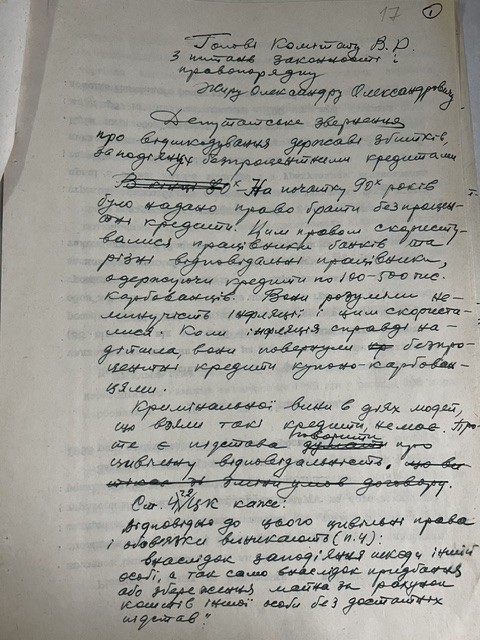 17
1
Голові Комітету В.Р.
з питань законності і
правопорядку
Жиру Олександру Олександровичу
Депутатське звернення
про відшкодування державі збитків,
заподіяних безпроцентними кредитами
На початку 90х років
було надано право брати безпроцен-
тні кредити. Цим правом скористу-
валися працівники банків та
різні відповідальні працівники,
одержуючи кредити по 100-500 тис.
карбованців. Вони розуміли не-
минучість інфляції і цим скориста-
лися. Коли інфляція справді на-
дійшла, вони повернули безпро-
центні кредити купоно-карбован-
цями.
Кримінальної вини в діях людей,
що взяли такі кредити, немає. Про-
те є підстава говорити про
цивільну відповідальність.
Ст. 4 ЦК каже:
Відповідно до цього цивільні права
і обов'язки виникають (п.4):
внаслідок заподіяння шкоди іншій
особі, а так само внаслідок придбання
або збереження майна за рахунок
коштів іншої особи без достатніх
підстав"